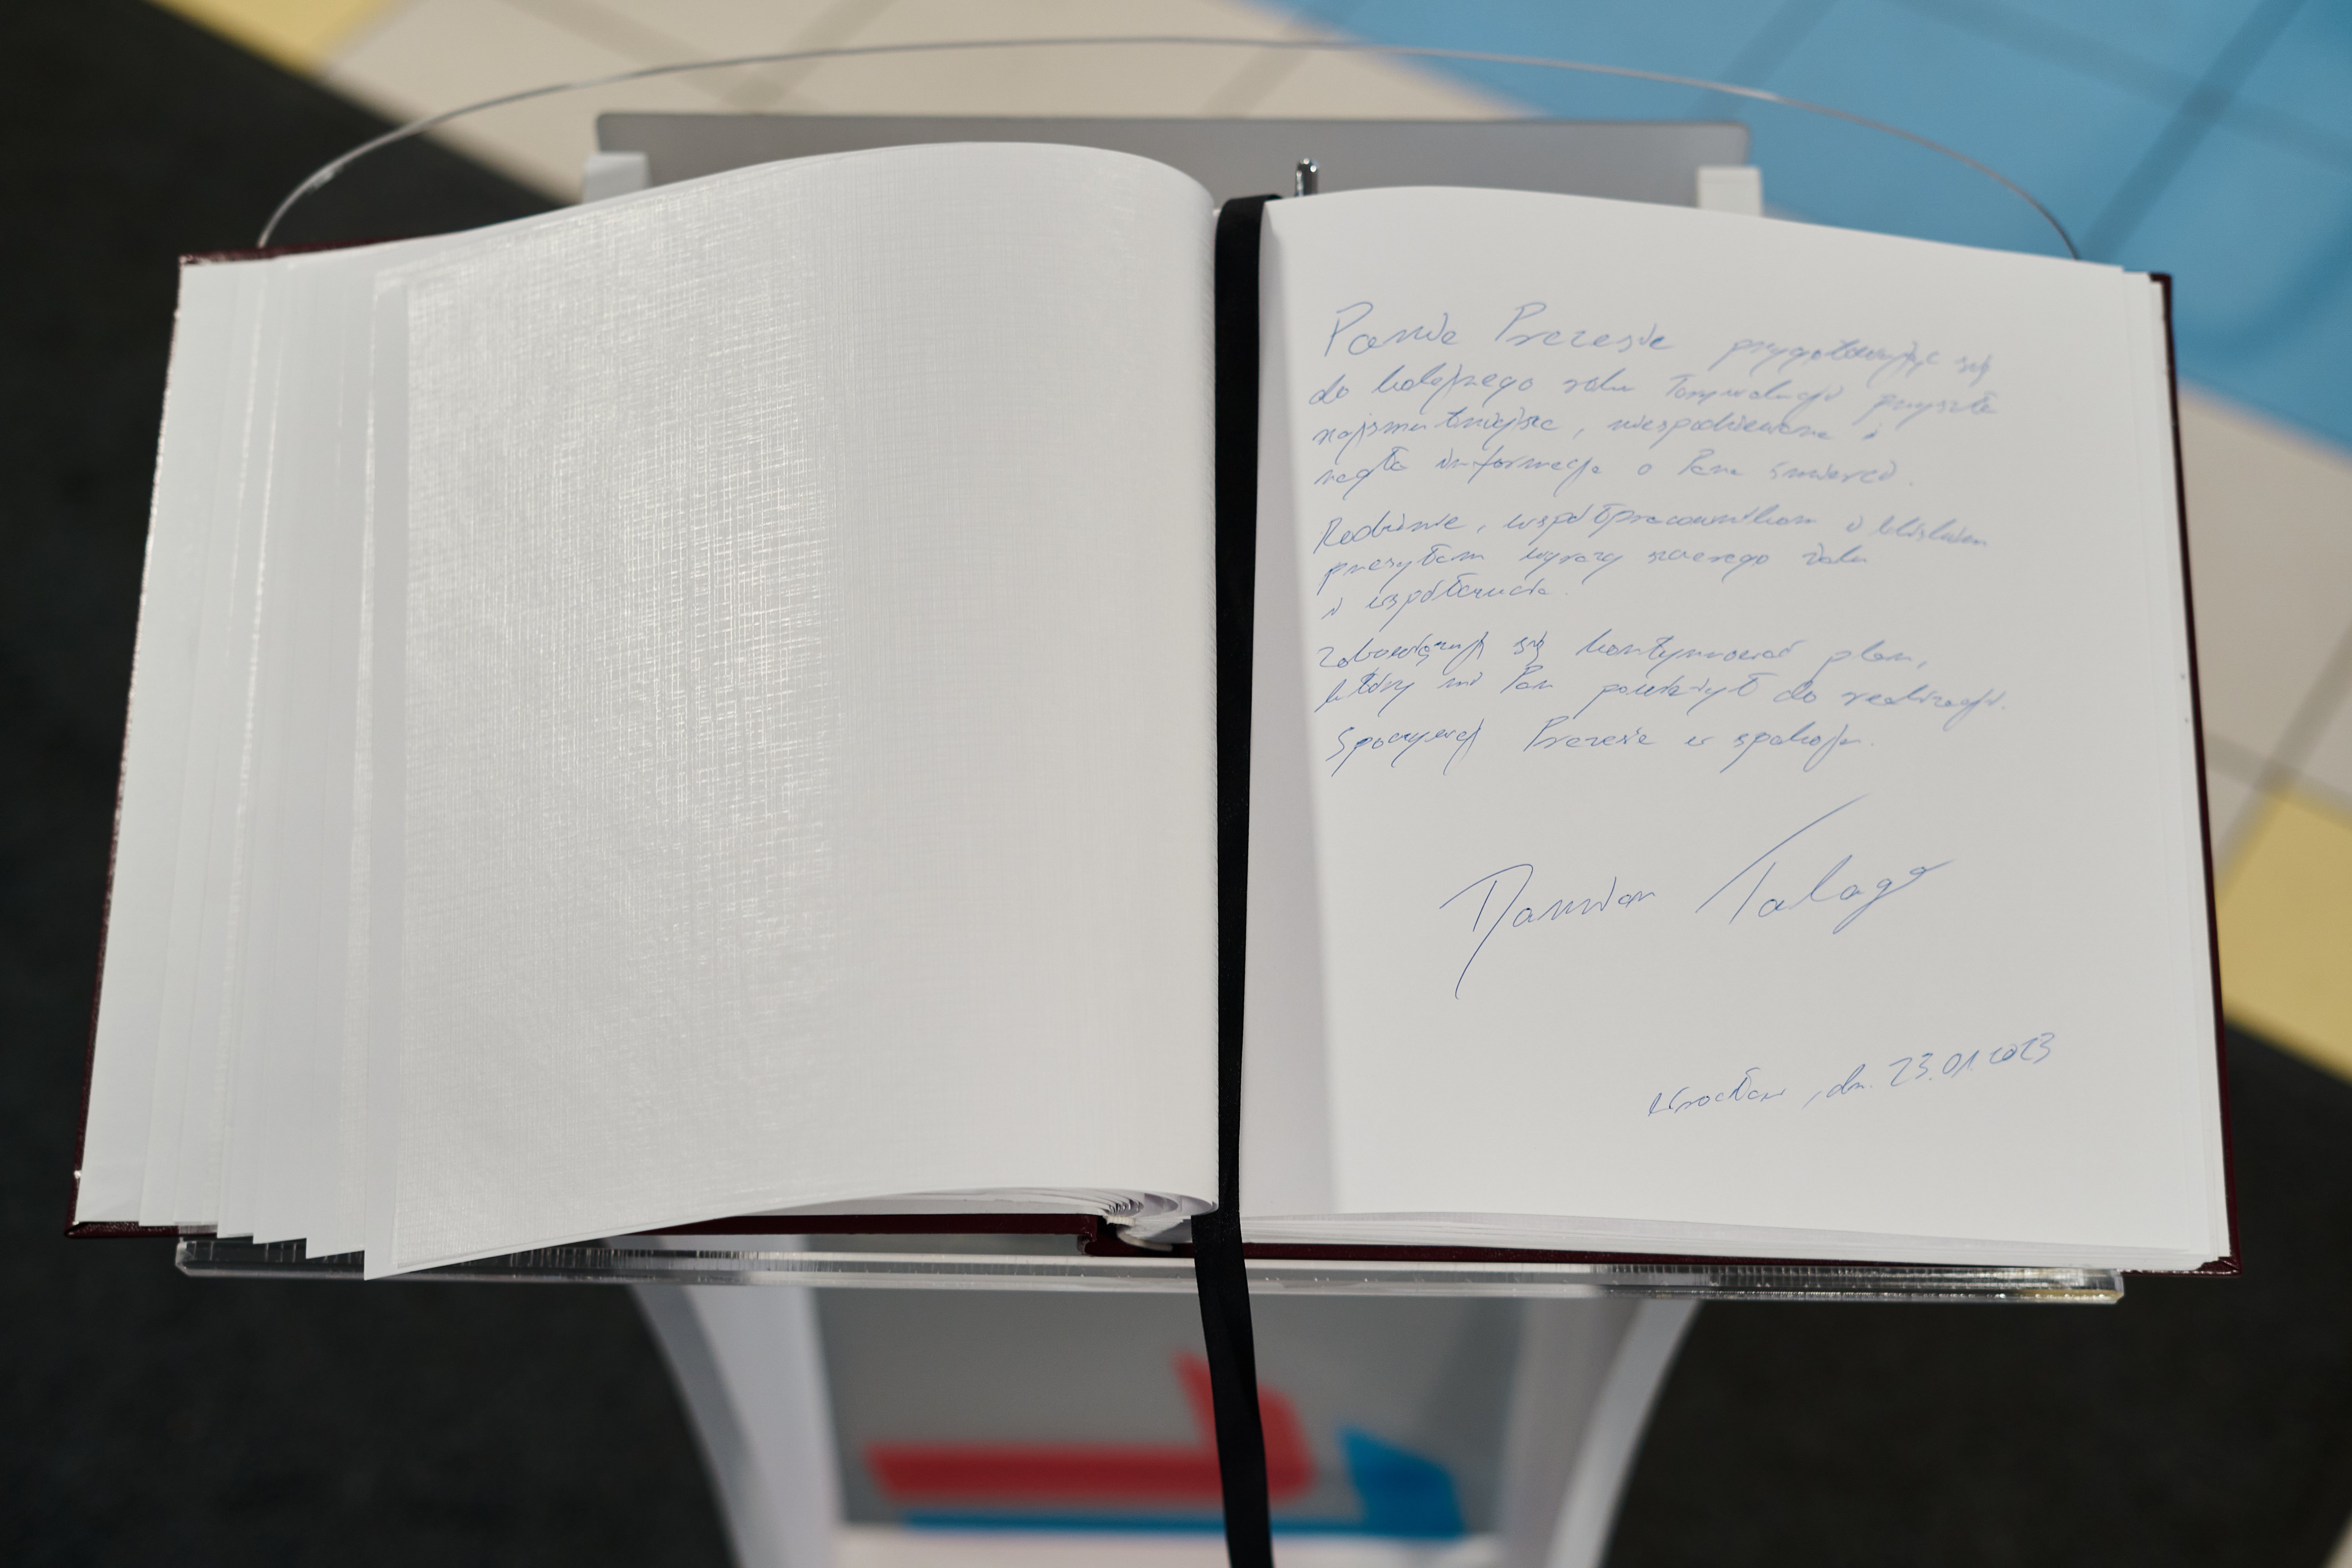 Panie Prezesie przygotowując się
do kolejnego roku rywalizacji przyszła
najsmutniejsza, niespodziewana i
nagła informacja o Pana śmierci.
Rodzinie, współpracownikom i bliskim
przesyłam wyrazy szczerego żalu
i współczucia.
Zobowiązuję się kontynuować plan,
który mi Pan powierzył do realizacji.
Spoczywaj Prezesie w spokoju.
Damian
Wrocław, dn. 23.01.2023